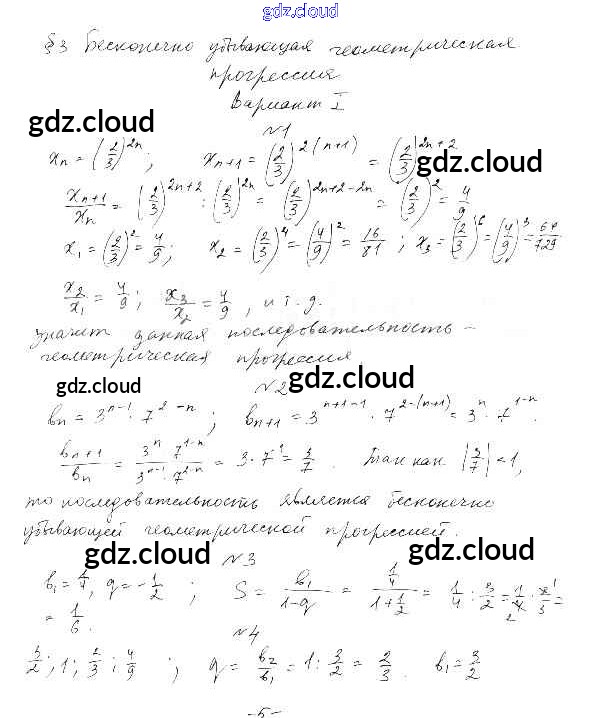 gdz.cloud
§3 Бесконечно убывающая геометрическая
прогрессия
Вариант I
gdz.cloud
№1
xₙ = (2/3)²ⁿ ; xₙ₊₁ = (2/3)²⁽ⁿ⁺¹⁾ = (2/3)²ⁿ⁺²
gdz.cloud
xₙ₊₁/xₙ = (2/3)²ⁿ⁺² : (2/3)²ⁿ = (2/3)²ⁿ⁺²⁻²ⁿ = (2/3)² = 4/9
x₁ = (2/3)² = 4/9 ; x₂ = (2/3)⁴ = (4/9)² = 16/81 ; x₃ = (2/3)⁶ = (4/9)³ = 64/729
x₂/x₁ = 4/9 ; x₃/x₂ = 4/9 , и т.д.
значит данная последовательность –
геометрическая прогрессия
gdz.cloud
gdz.cloud
№2
bₙ = 3ⁿ⁻¹ · 7²⁻ⁿ ; bₙ₊₁ = 3ⁿ⁺¹⁻¹ · 7²⁻⁽ⁿ⁺¹⁾ = 3ⁿ · 7¹⁻ⁿ
bₙ₊₁/bₙ = 3ⁿ · 7¹⁻ⁿ / 3ⁿ⁻¹ · 7²⁻ⁿ = 3 · 7⁻¹ = 3/7 . Так как |3/7| < 1,
то последовательность является бесконечно
убывающей геометрической прогрессией.
gdz.cloud
gdz.cloud
№3
b₁ = 1/4, q = -1/2 ; S = b₁/(1-q) = (1/4)/(1+1/2) = 1/4 : 3/2 = 1/4 · 2/3 =
= 1/6 .
№4
3/2 ; 1 ; 2/3 ; 4/9 ; q = b₂/b₁ = 1 : 3/2 = 2/3 . b₁ = 3/2
-5-